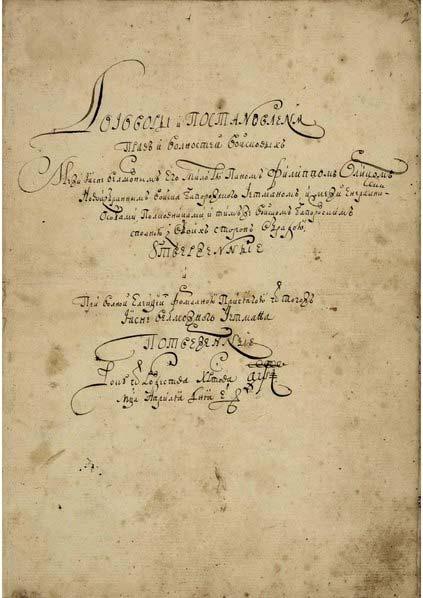 Договоры и Постановленя
Правъ и волностей войсковыхъ
Межи Ясне велможнымъ Его Милостю Паномъ Филиппомъ Орликомъ
Новоизбраннымъ войска Запорожского Гетманомъ, и межи Енералними
Особами Полковниками и тимъ же войскомъ Запорожскимъ
сполною з обоихъ сторонъ обрадою
Утверженные
и
При волной Елекціи формалною Присягою ѿ тогожъ
Ясне велможного Гетмана
Потверженные
Року ѿ Рождества Христова
мця Априля дня